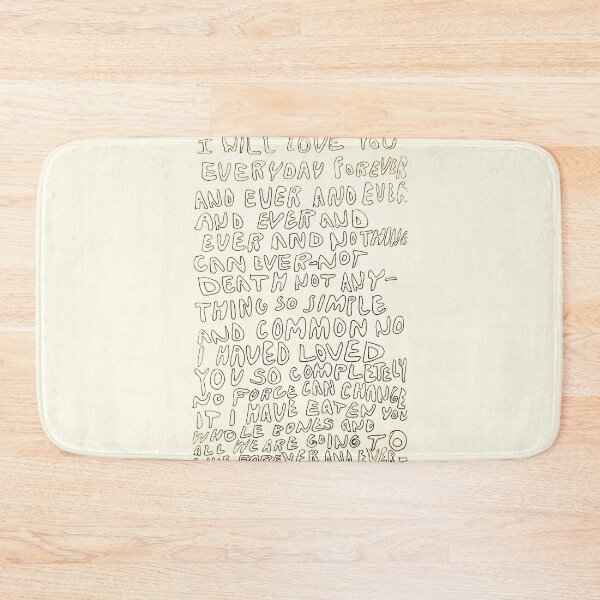 I WILL LOVE YOU
EVERYDAY FOREVER
AND EVER AND EVER
AND EVER AND
EVER AND NOTHING
CAN EVER-NOT
DEATH NOT ANY-
THING SO SIMPLE
AND COMMON NO
I HAVED LOVED
YOU SO COMPLETELY
NO FORCE CAN CHANGE
IT I HAVE EATEN YOU
WHOLE BONES AND
ALL WE ARE GOING TO
LIVE FOREVER AND EVER-